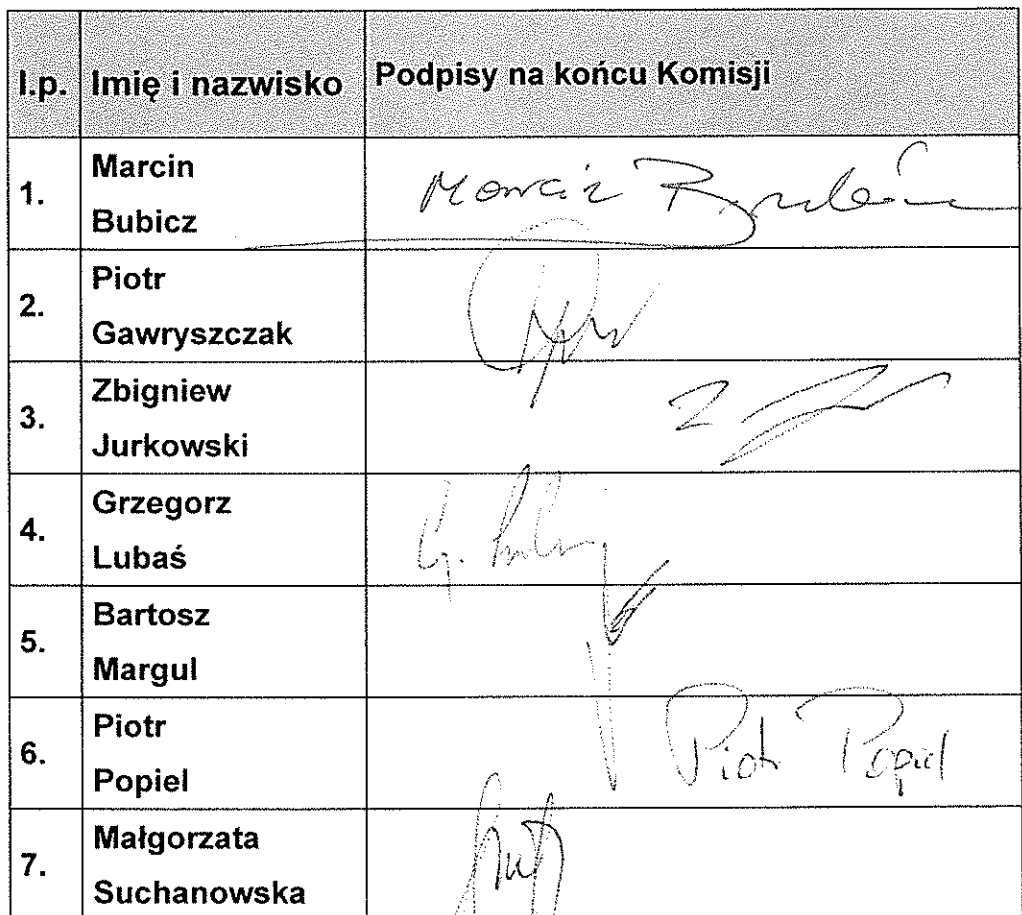 l.p. Imię i nazwisko Podpisy na końcu Komisji
1. Marcin Bubicz Marcin Bubicz
2. Piotr Gawryszczak
3. Zbigniew Jurkowski
4. Grzegorz Lubaś
5. Bartosz Margul
6. Piotr Popiel Piotr Popiel
7. Małgorzata Suchanowska